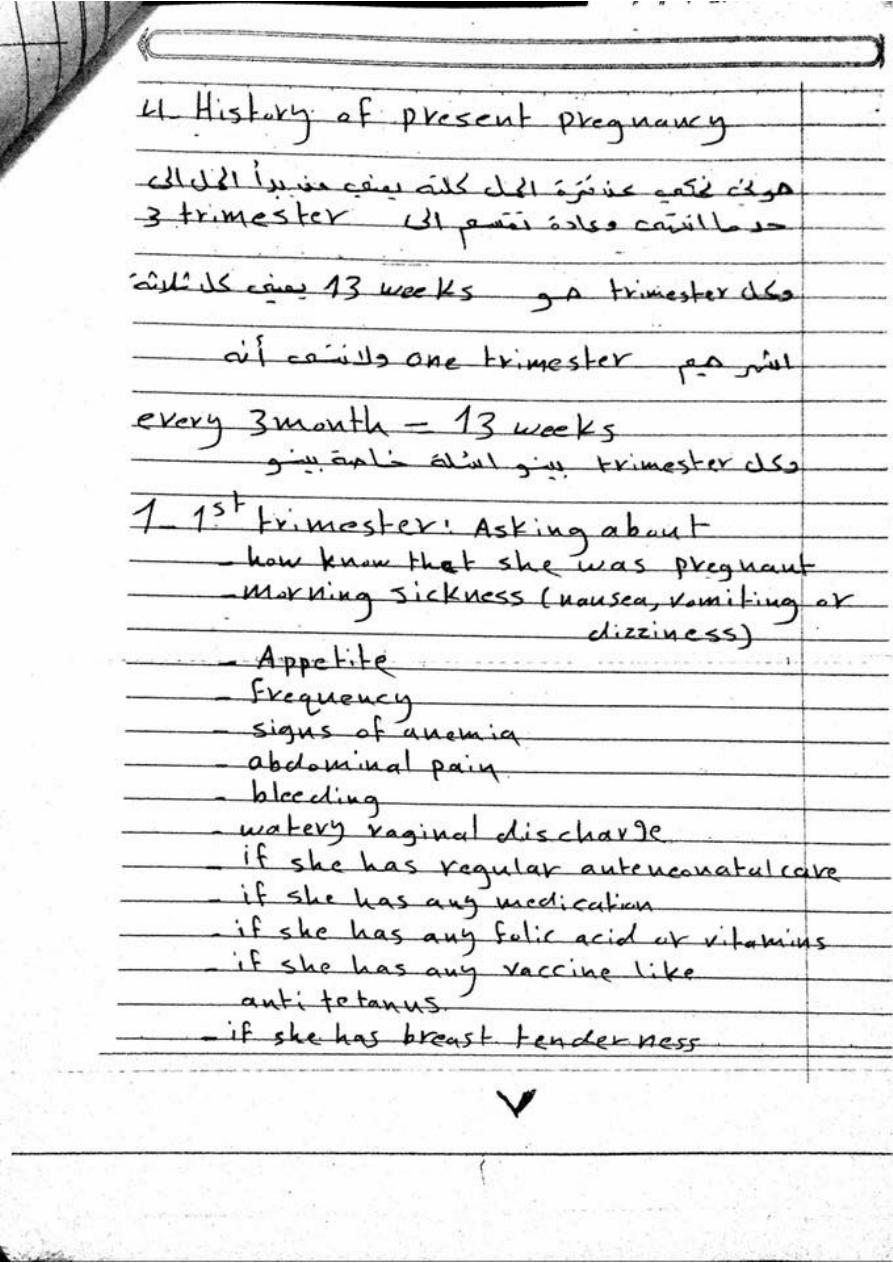 4- History of present pregnancy
هوني نحكي عن فترة الحمل كلته يعني من بدأ الحمل الى
حد ما انتهى وعادة تقسم الى 3 trimester
وكل trimester هو 13 weeks يعني كل ثلاثة
اشهر هيه one trimester ولا ننسى أنه
every 3 month = 13 weeks
وكل trimester بينو اسئلة خاصة بينو
1- 1st trimester: Asking about
- how know that she was pregnant
- morning sickness (nausea, vomiting or
dizziness)
- Appetite
- frequency
- signs of anemia
- abdominal pain
- bleeding
- watery vaginal discharge
- if she has regular anteneonatal care
- if she has any medication
- if she has any folic acid or vitamins
- if she has any vaccine like
anti tetanus.
- if she has breast tenderness
٧